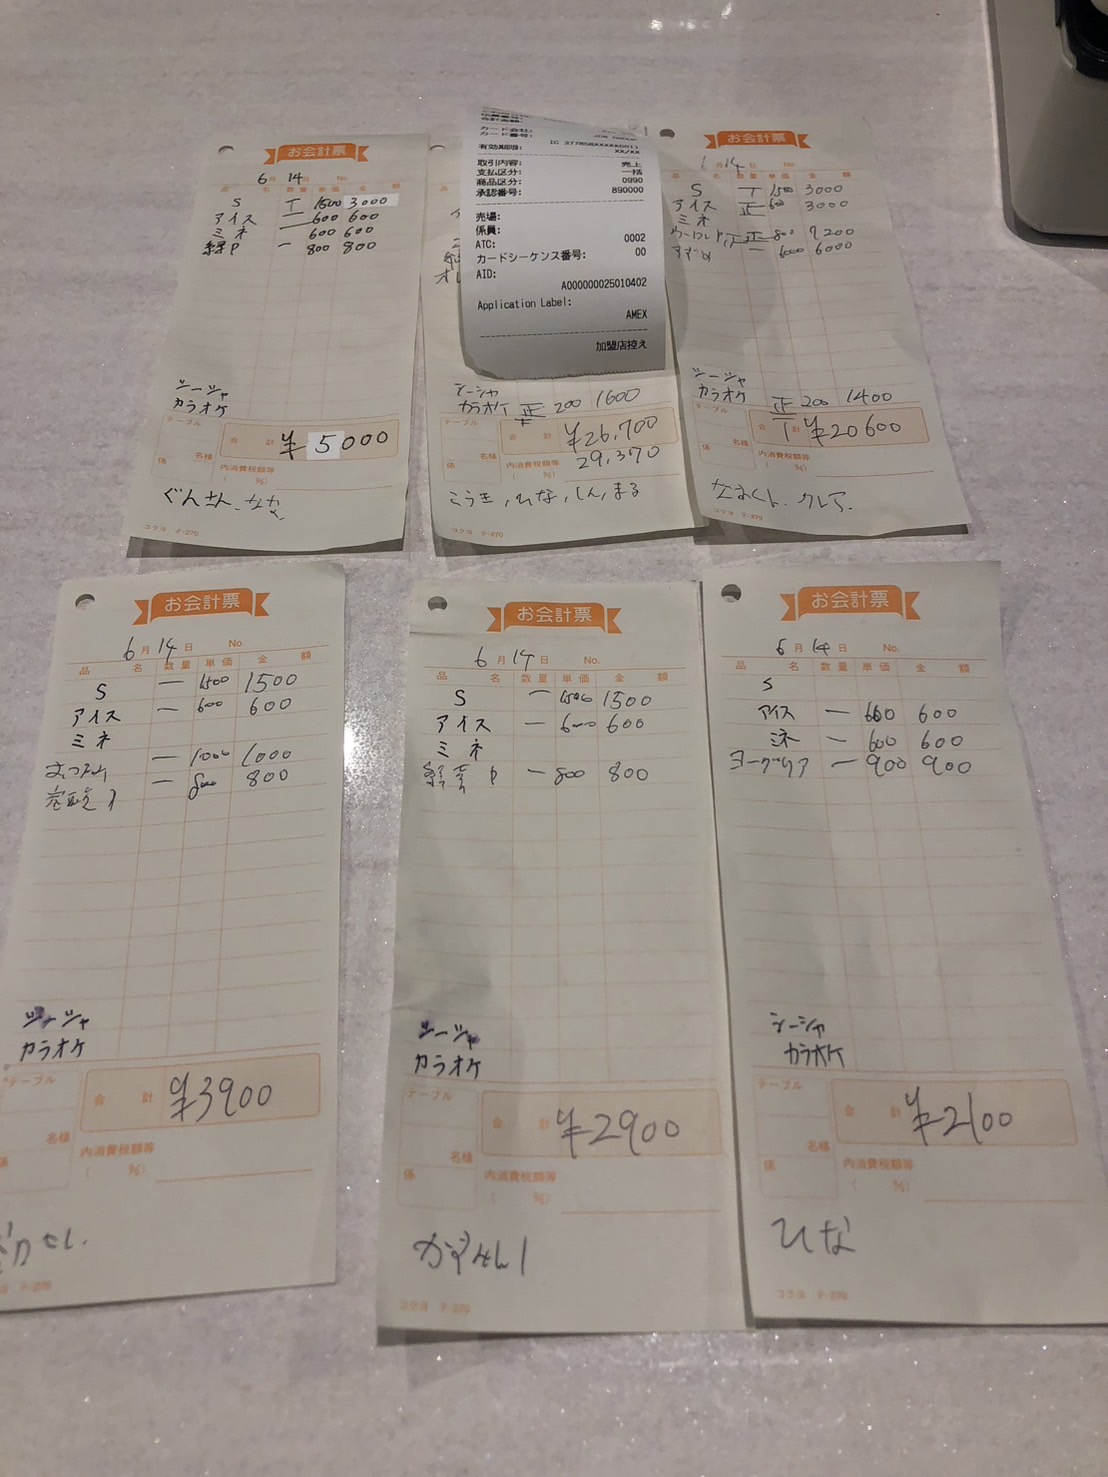 お会計票
6月 14日 No.
品 名 数量 単価 金 額
S T 1500 3000
アイス 一 600 600
ミネ 一 600 600
緑P 一 800 800
シーシャ
カラオケ
テーブル
合 計 ¥5000
係 名様
内消費税額等
( %)
ぐんさん、なな
コクヨ テ-270
カード会社:
カード番号:
IC 377858XXXXX0011
有効期限: XX/XX
取引内容: 売上
支払区分: 一括
商品区分: 0990
承認番号: 890000
売場:
係員:
ATC: 0002
カードシーケンス番号: 00
AID:
A000000025010402
Application Label:
AMEX
加盟店控え
シーシャ
カラオケ 正下 200 1600
テーブル
合 計 ¥26,700
29,370
係 名様
内消費税額等
( %)
こうき,ひな,しん,まる
コクヨ テ-270
お会計票
14日 No.
品 名 数量 単価 金 額
S T 1500 3000
アイス 正 600 3000
ミネ
正 800 7200
一 6000 6000
シーシャ
カラオケ 正T 200 1400
テーブル
合 計 ¥20600
係 名様
内消費税額等
( %)
なおくん、クレア.
コクヨ テ-270
お会計票
6月 14日 No.
品 名 数量 単価 金 額
S 一 1500 1500
アイス 一 600 600
ミネ
一 1000 1000
一 800 800
シーシャ
カラオケ
テーブル
合 計 ¥3900
名様
内消費税額等
( %)
テ-270
お会計票
6月 14日 No.
品 名 数量 単価 金 額
S 一 1500 1500
アイス 一 600 600
ミネ
P 一 800 800
シーシャ
カラオケ
テーブル
合 計 ¥2900
係 名様
内消費税額等
( %)
コクヨ テ-270
お会計票
6月 14日 No.
品 名 数量 単価 金 額
S
アイス 一 600 600
ミネ 一 600 600
ヨーグリア 一 900 900
シーシャ
カラオケ
テーブル
合 計 ¥2100
係 名様
内消費税額等
( %)
ひな
コクヨ テ-270